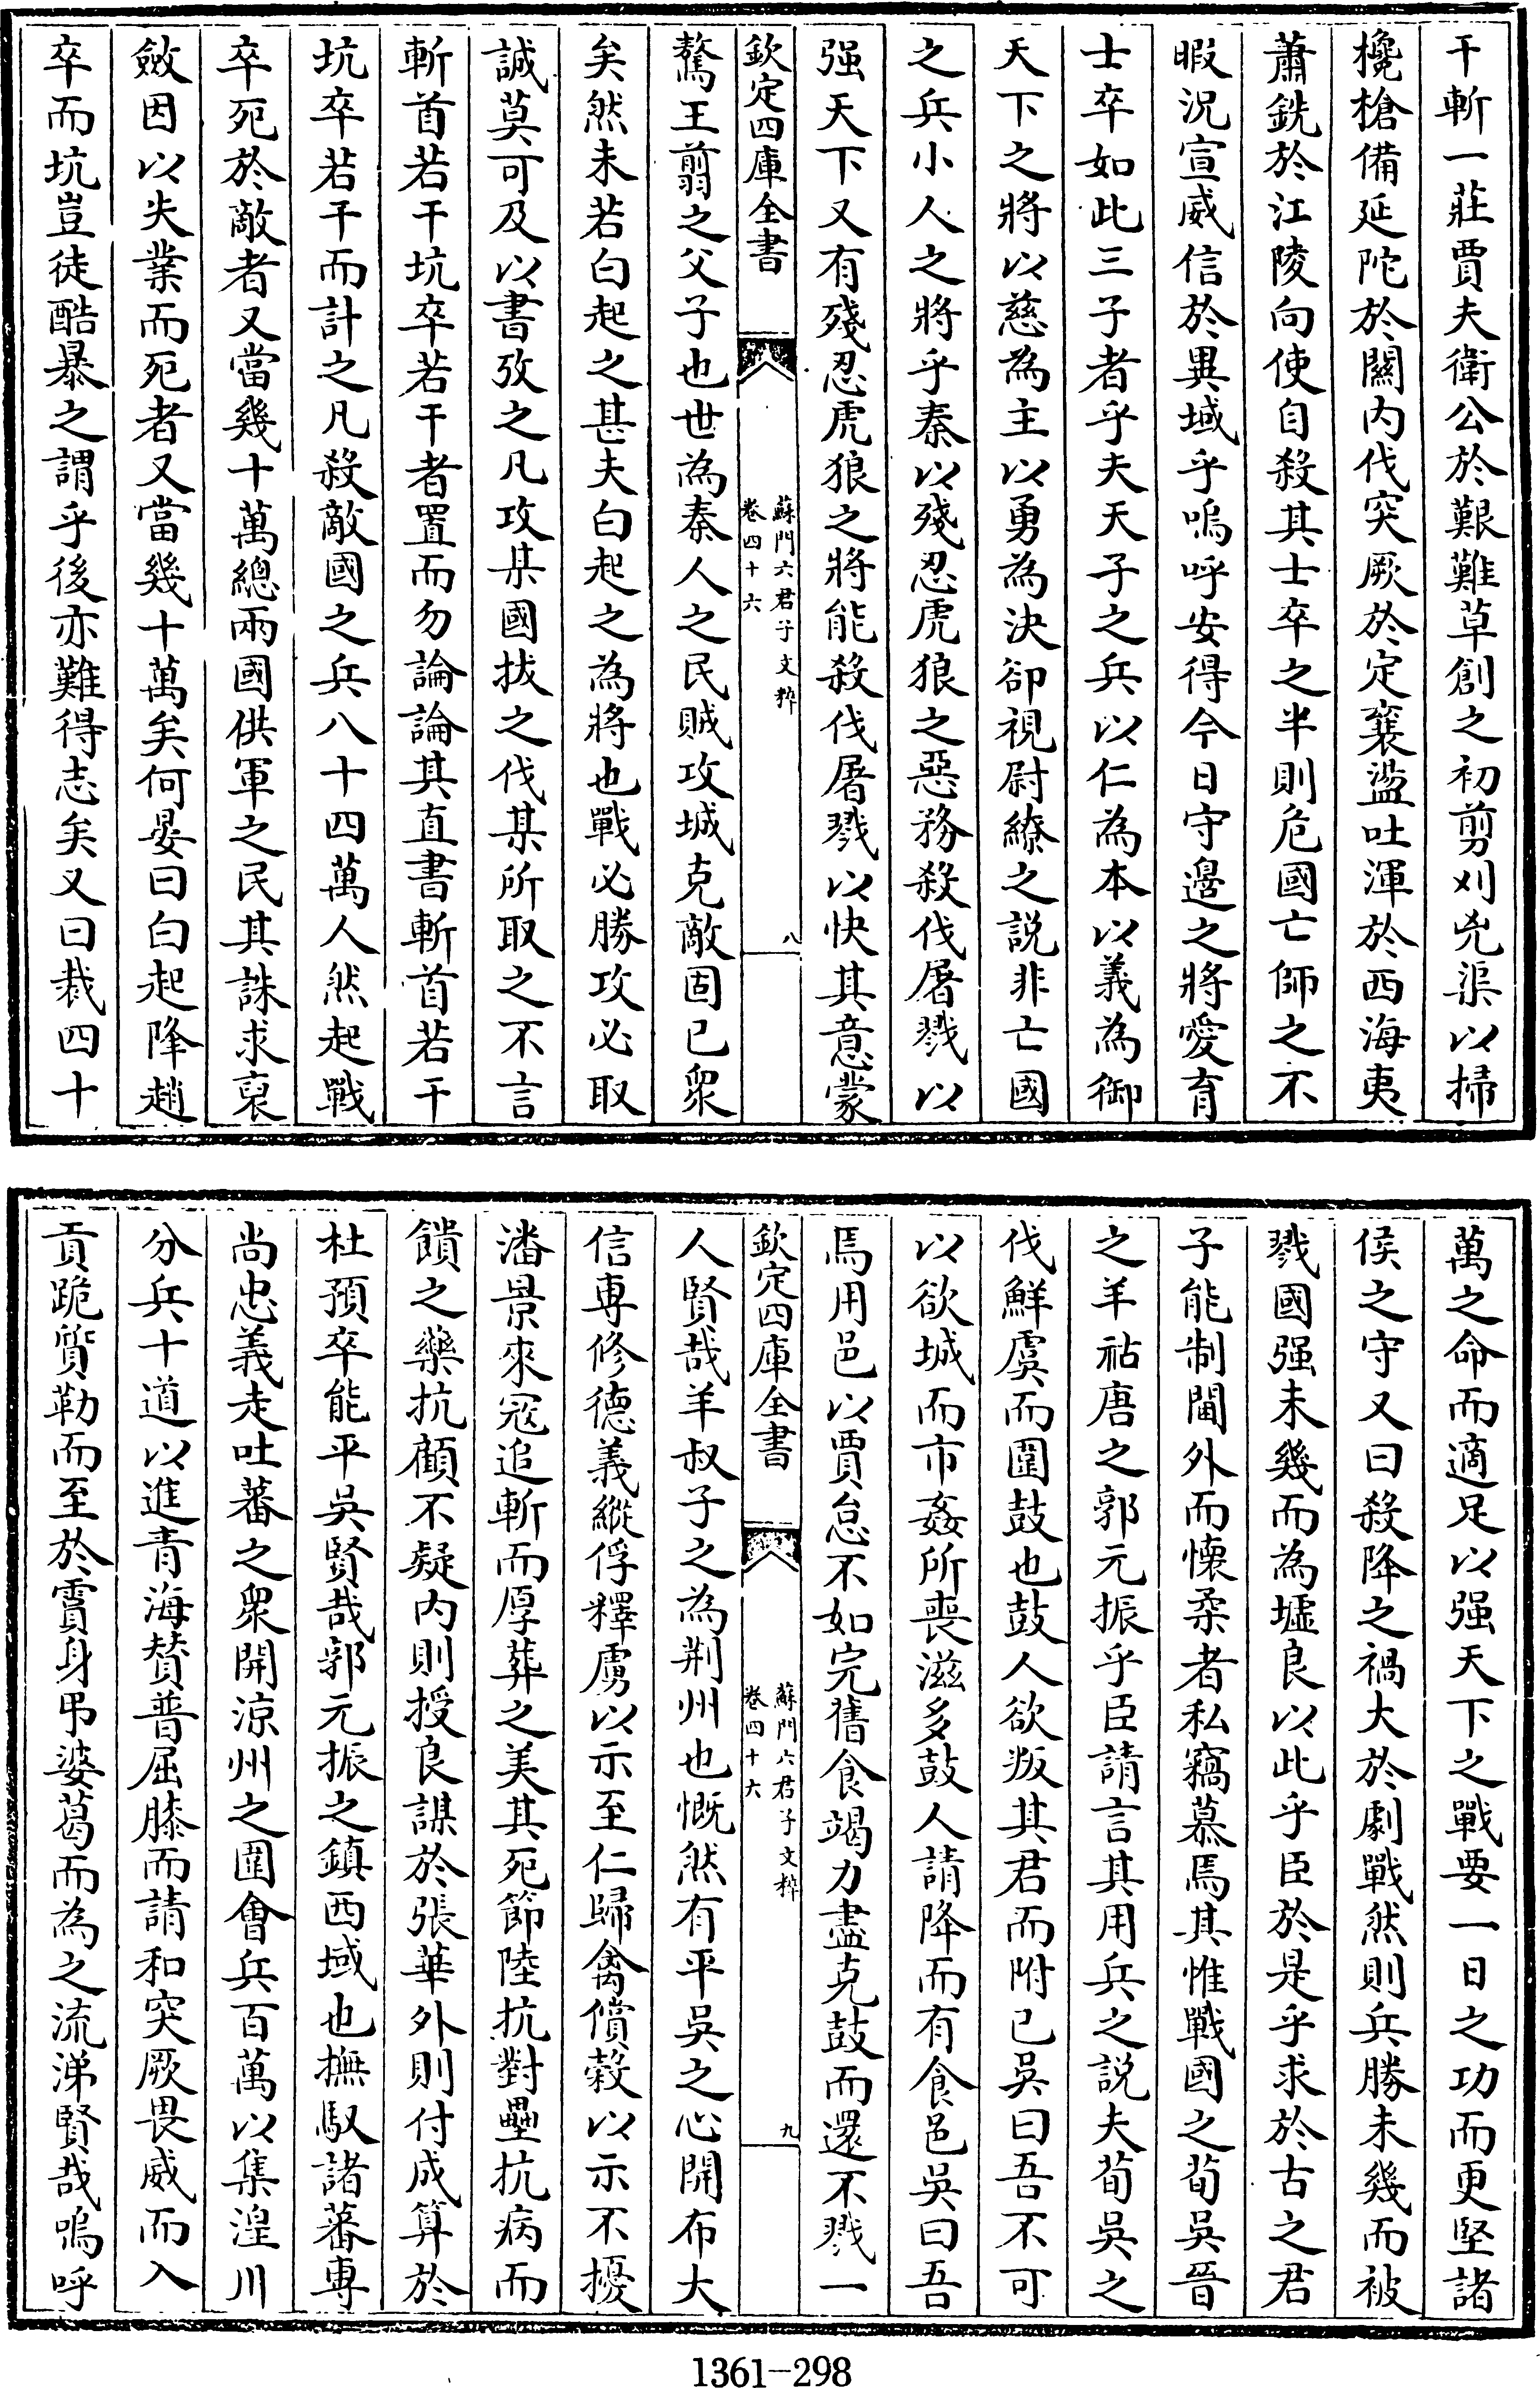 干斬一莊賈夫衛公於艱難草創之初剪刈兇渠以掃
欃槍備延陀於關內伐突厥於定襄盪吐渾於西海夷
蕭銑於江陵向使自殺其士卒之半則危國亡師之不
暇況宣威信於異域乎嗚呼安得今日守邊之將愛育
士卒如此三子者乎夫天子之兵以仁為本以義為御
天下之將以慈為主以勇為決卻視尉繚之説非亡國
之兵小人之將乎秦以殘忍虎狼之惡務殺伐屠戮以
强天下又有殘忍虎狼之將能殺伐屠戮以快其意蒙
欽定四庫全書
蘇門六君子文粹
卷四十六
八
驁王翦之父子也世為秦人之民賊攻城克敵固已衆
矣然未若白起之甚夫白起之為將也戰必勝攻必取
誠莫可及以書攷之凡攻某國拔之伐某所取之不言
斬首若干坑卒若干者置而勿論論其直書斬首若干
坑卒若干而計之凡殺敵國之兵八十四萬人然起戰
卒死於敵者又當幾十萬總兩國供軍之民其誅求裒
斂因以失業而死者又當幾十萬矣何晏曰白起降趙
卒而坑豈徒酷暴之謂乎後亦難得志矣又曰裁四十
萬之命而適足以强天下之戰要一日之功而更堅諸
侯之守又曰殺降之禍大於劇戰然則兵勝未幾而被
戮國强未幾而為墟良以此乎臣於是乎求於古之君
子能制閫外而懷柔者私竊慕焉其惟戰國之荀吳晉
之羊祜唐之郭元振乎臣請言其用兵之説夫荀吳之
伐鮮虞而圍鼓也鼓人欲叛其君而附已吳曰吾不可
以欲城而市姦所喪滋多鼓人請降而有食邑吳曰吾
焉用邑以賈怠不如完舊食竭力盡克鼓而還不戮一
欽定四庫全書
蘇門六君子文粹
卷四十六
九
人賢哉羊叔子之為荆州也慨然有平吳之心開布大
信專修德義縱俘釋虜以示至仁歸禽償穀以示不擾
潘景來寇追斬而厚葬之美其死節陸抗對壘抗病而
饋之藥抗顧不疑内則授良謀於張華外則付成算於
杜預卒能平吳賢哉郭元振之鎮西域也撫馭諸蕃專
尚忠義走吐蕃之衆開涼州之圍會兵百萬以集湟川
分兵十道以進青海贊普屈膝而請和突厥畏威而入
貢跪質勒而至於霣身弔婆葛而為之流涕賢哉嗚呼
1361-298